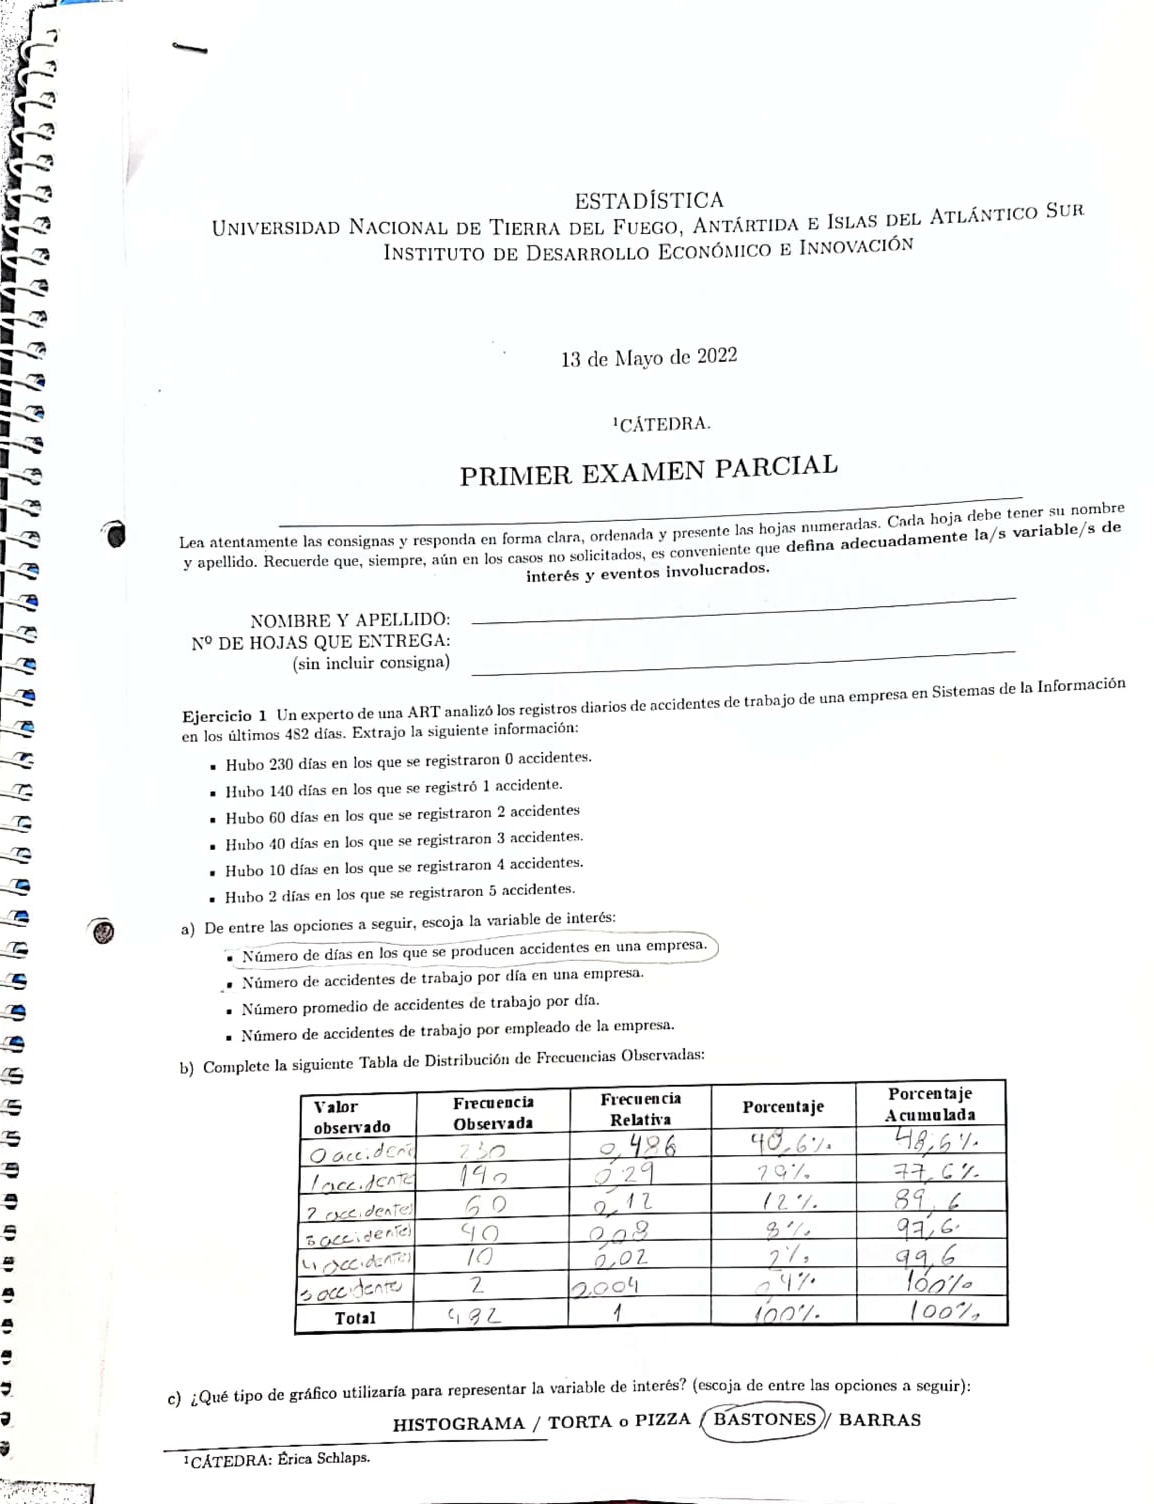 ESTADÍSTICA
UNIVERSIDAD NACIONAL DE TIERRA DEL FUEGO, ANTÁRTIDA E ISLAS DEL ATLÁNTICO SUR
INSTITUTO DE DESARROLLO ECONÓMICO E INNOVACIÓN
13 de Mayo de 2022
¹CÁTEDRA.
PRIMER EXAMEN PARCIAL
Lea atentamente las consignas y responda en forma clara, ordenada y presente las hojas numeradas. Cada hoja debe tener su nombre
y apellido. Recuerde que, siempre, aún en los casos no solicitados, es conveniente que defina adecuadamente la/s variable/s de
interés y eventos involucrados.
NOMBRE Y APELLIDO:
Nº DE HOJAS QUE ENTREGA:
(sin incluir consigna)
Ejercicio 1 Un experto de una ART analizó los registros diarios de accidentes de trabajo de una empresa en Sistemas de la Información
en los últimos 482 días. Extrajo la siguiente información:
▪ Hubo 230 días en los que se registraron 0 accidentes.
▪ Hubo 140 días en los que se registró 1 accidente.
▪ Hubo 60 días en los que se registraron 2 accidentes
▪ Hubo 40 días en los que se registraron 3 accidentes.
▪ Hubo 10 días en los que se registraron 4 accidentes.
▪ Hubo 2 días en los que se registraron 5 accidentes.
a) De entre las opciones a seguir, escoja la variable de interés:
▪ Número de días en los que se producen accidentes en una empresa.
▪ Número de accidentes de trabajo por día en una empresa.
▪ Número promedio de accidentes de trabajo por día.
▪ Número de accidentes de trabajo por empleado de la empresa.
b) Complete la siguiente Tabla de Distribución de Frecuencias Observadas:
Valor observado Frecuencia Observada Frecuencia Relativa Porcentaje Porcentaje Acumulada
0 accident 230 0,486 48,6% 48,6%
1 accidente 140 0,29 29% 77,6%
2 accidentes 60 0,12 12% 89,6
3 accidentes 40 0,08 8% 97,6
4 accidentes 10 0,02 2% 99,6
5 accidente 2 0.004 0,4% 100%
Total 482 1 100% 100%
c) ¿Qué tipo de gráfico utilizaría para representar la variable de interés? (escoja de entre las opciones a seguir):
HISTOGRAMA / TORTA o PIZZA / BASTONES / BARRAS
¹CÁTEDRA: Érica Schlaps.